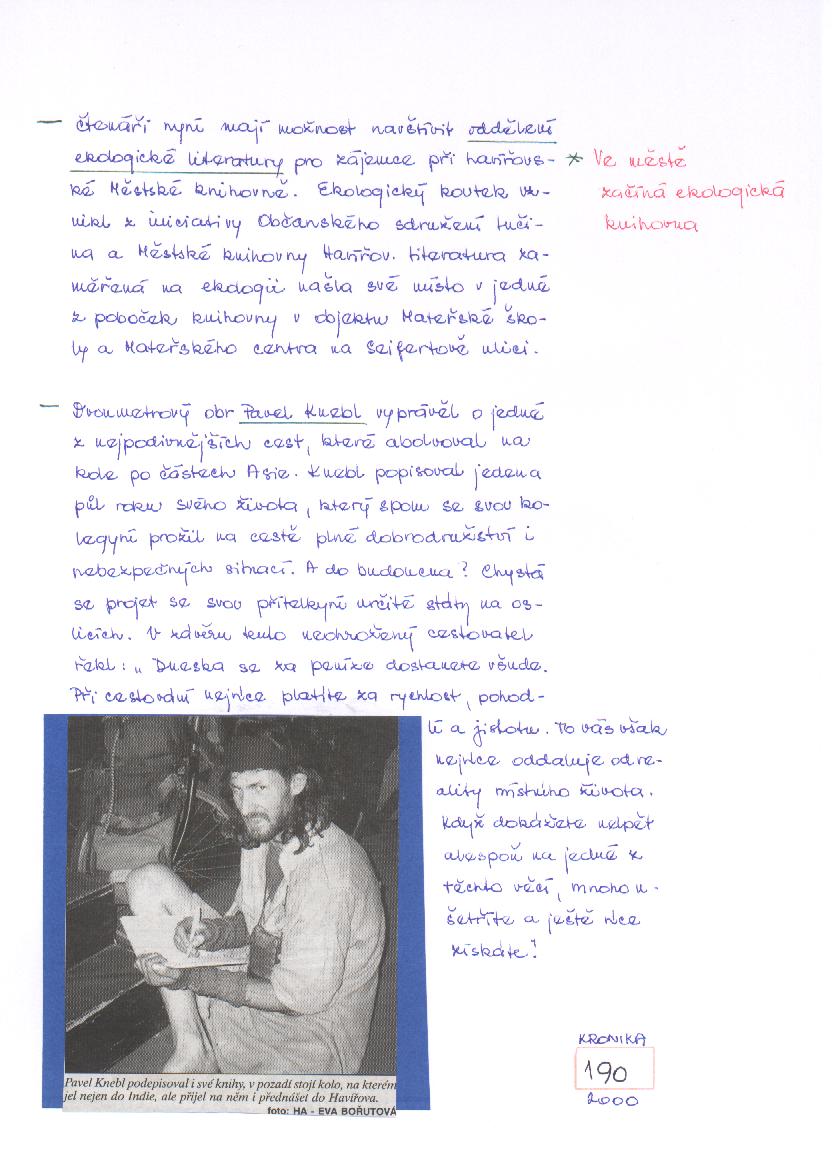 — Čtenáři nyní mají možnost navštívit oddělení
ekologické literatury pro zájemce při havířovs-
ké Městské knihovně. Ekologický koutek vz-
nikl z iniciativy Občanského sdružení Luči-
na a Městské knihovny Havířov. Literatura za-
měřená na ekologii našla své místo v jedné
z poboček knihovny v objektu Mateřské ško-
ly a Mateřského centra na Seifertově ulici.
* Ve městě
začíná ekologická
knihovna
— Dvoumetrový obr Pavel Knebl vyprávěl o jedné
z nejpodivnějších cest, které absolvoval na
kole po částech Asie. Knebl popisoval jedena
půl roku svého života, který spolu se svou ko-
legyní prožil na cestě plné dobrodružství i
nebezpečných situací. A do budoucna? Chystá
se projet se svou přítelkyní určité státy na os-
lících. V závěru tento neohrožený cestovatel
řekl: „Dneska se za peníze dostanete všude.
Při cestování nejvíce platíte za rychlost, pohod-
lí a jistotu. To vás však
nejvíce oddaluje od re-
ality místního života.
Když dokážete nelpět
alespoň na jedné z
těchto věcí, mnoho u-
šetříte a ještě více
získáte!
Pavel Knebl podepisoval i své knihy, v pozadí stojí kolo, na kterém
jel nejen do Indie, ale přijel na něm i přednášet do Havířova.
foto: HA - EVA BOŘUTOVÁ
KRONIKA
190
2000